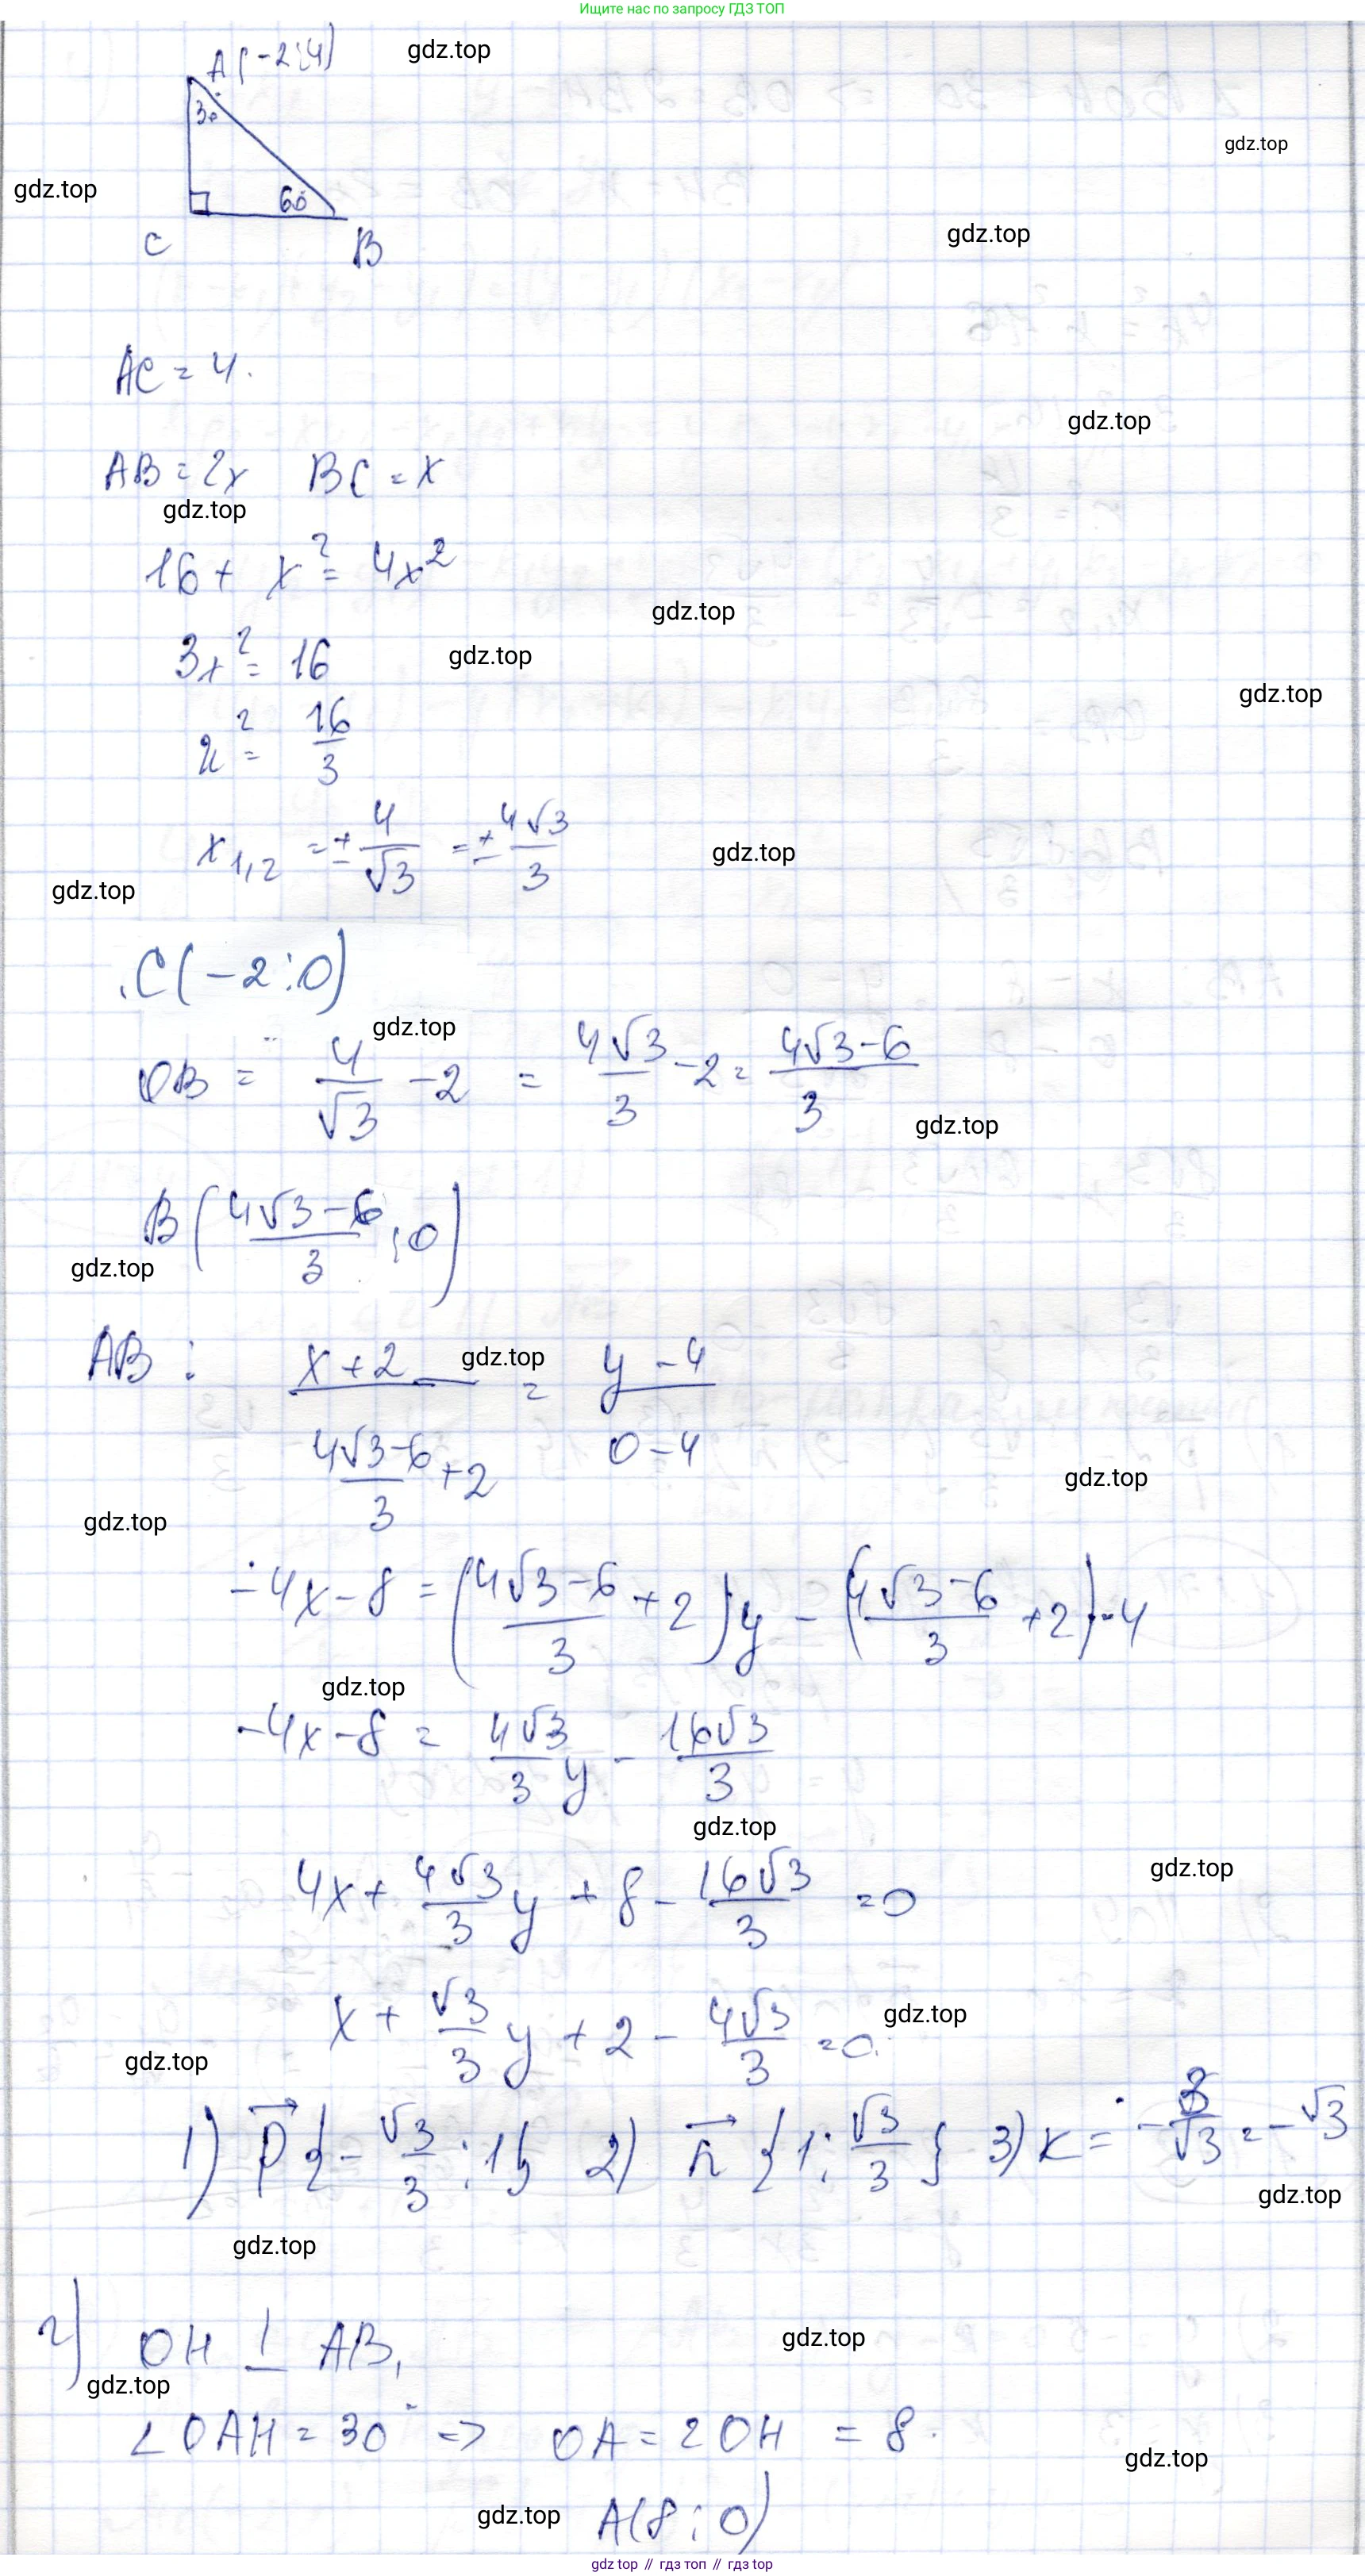 Ищите нас по запросу ГДЗ ТОП
A(-2;4)
gdz.top
30°
gdz.top
gdz.top
60°
gdz.top
C
B
AC = 4.
gdz.top
AB = 2x BC = x
gdz.top
16 + x² = 4x²
gdz.top
3x² = 16
gdz.top
gdz.top
x² = 16/3
x₁,₂ = ± 4/√3 = ± 4√3/3
gdz.top
gdz.top
C(-2;0)
gdz.top
OB = 4/√3 - 2 = 4√3/3 - 2 = (4√3-6)/3
gdz.top
B((4√3-6)/3;0)
gdz.top
AB: (x+2)/((4√3-6)/3+2) = (y-4)/(0-4)
gdz.top
gdz.top
gdz.top
-4x-8 = ((4√3-6)/3+2)y - ((4√3-6)/3+2)·4
gdz.top
-4x-8 = 4√3/3 y - 16√3/3
gdz.top
4x + 4√3/3 y + 8 - 16√3/3 = 0
gdz.top
x + √3/3 y + 2 - 4√3/3 = 0.
gdz.top
gdz.top
1) p⃗ {-√3/3;1} 2) n⃗ {1;√3/3} 3) k = -3/√3 = -√3
gdz.top
gdz.top
г) OH ⊥ AB,
gdz.top
gdz.top
∠OAH = 30° => OA = 2OH = 8.
gdz.top
A(8;0)
gdz.top
gdz top // гдз топ // гдз top